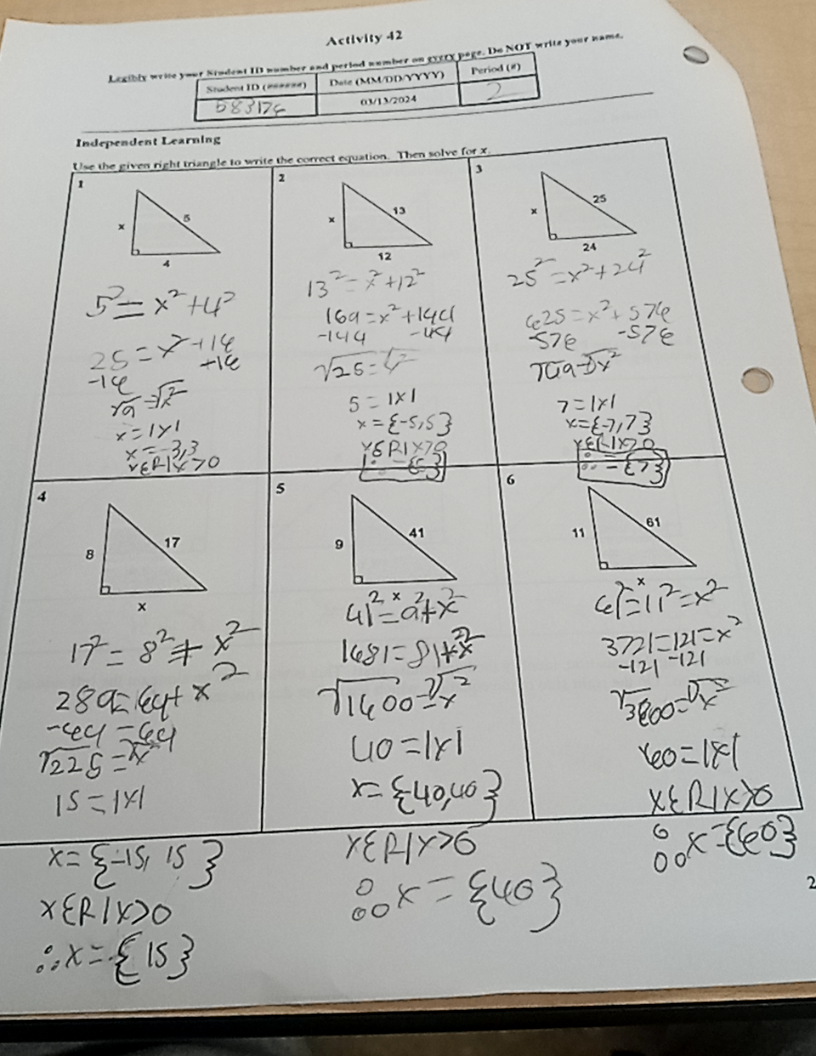 Activity 42
Legibly write your Student ID number and period number on every page. Do NOT write your name.
Student ID (######) Date (MM/DD/YYYY) Period (#)
03/13/2024 2
Independent Learning
Use the given right triangle to write the correct equation. Then solve for x.
1
x 5
4
5² = x² + 4²
25 = x² + 16
-16 +16
√9 = √x²
x = |x|
x = -3,3
xεR|x>0
2
x 13
12
13² = x² + 12²
169 = x² + 144
-144 -144
5 = |x|
x = {-5,5}
xεR|x>0
3
x 25
24
25² = x² + 24²
625 = x² + 576
-576 -576
√49 = √x²
7 = |x|
x = {-7,7}
xεR|x>0
∴ = {7}
4
8 17
x
17² = 8² + x²
289 = 64 + x²
-64 -64
√225 = √x²
15 = |x|
x = {-15, 15}
xεR|x>0
∴ x = {15}
5
9 41
x
41² = 9² + x²
1681 = 81 + x²
√1600 = √x²
40 = |x|
x = {-40,40}
xεR|x>0
∴ x = {40}
6
11 61
x
61² = 11² = x²
3721 = 121 = x²
-121 -121
√3600 = √x²
60 = |x|
xεR|x>0
∴ x = {60}
2